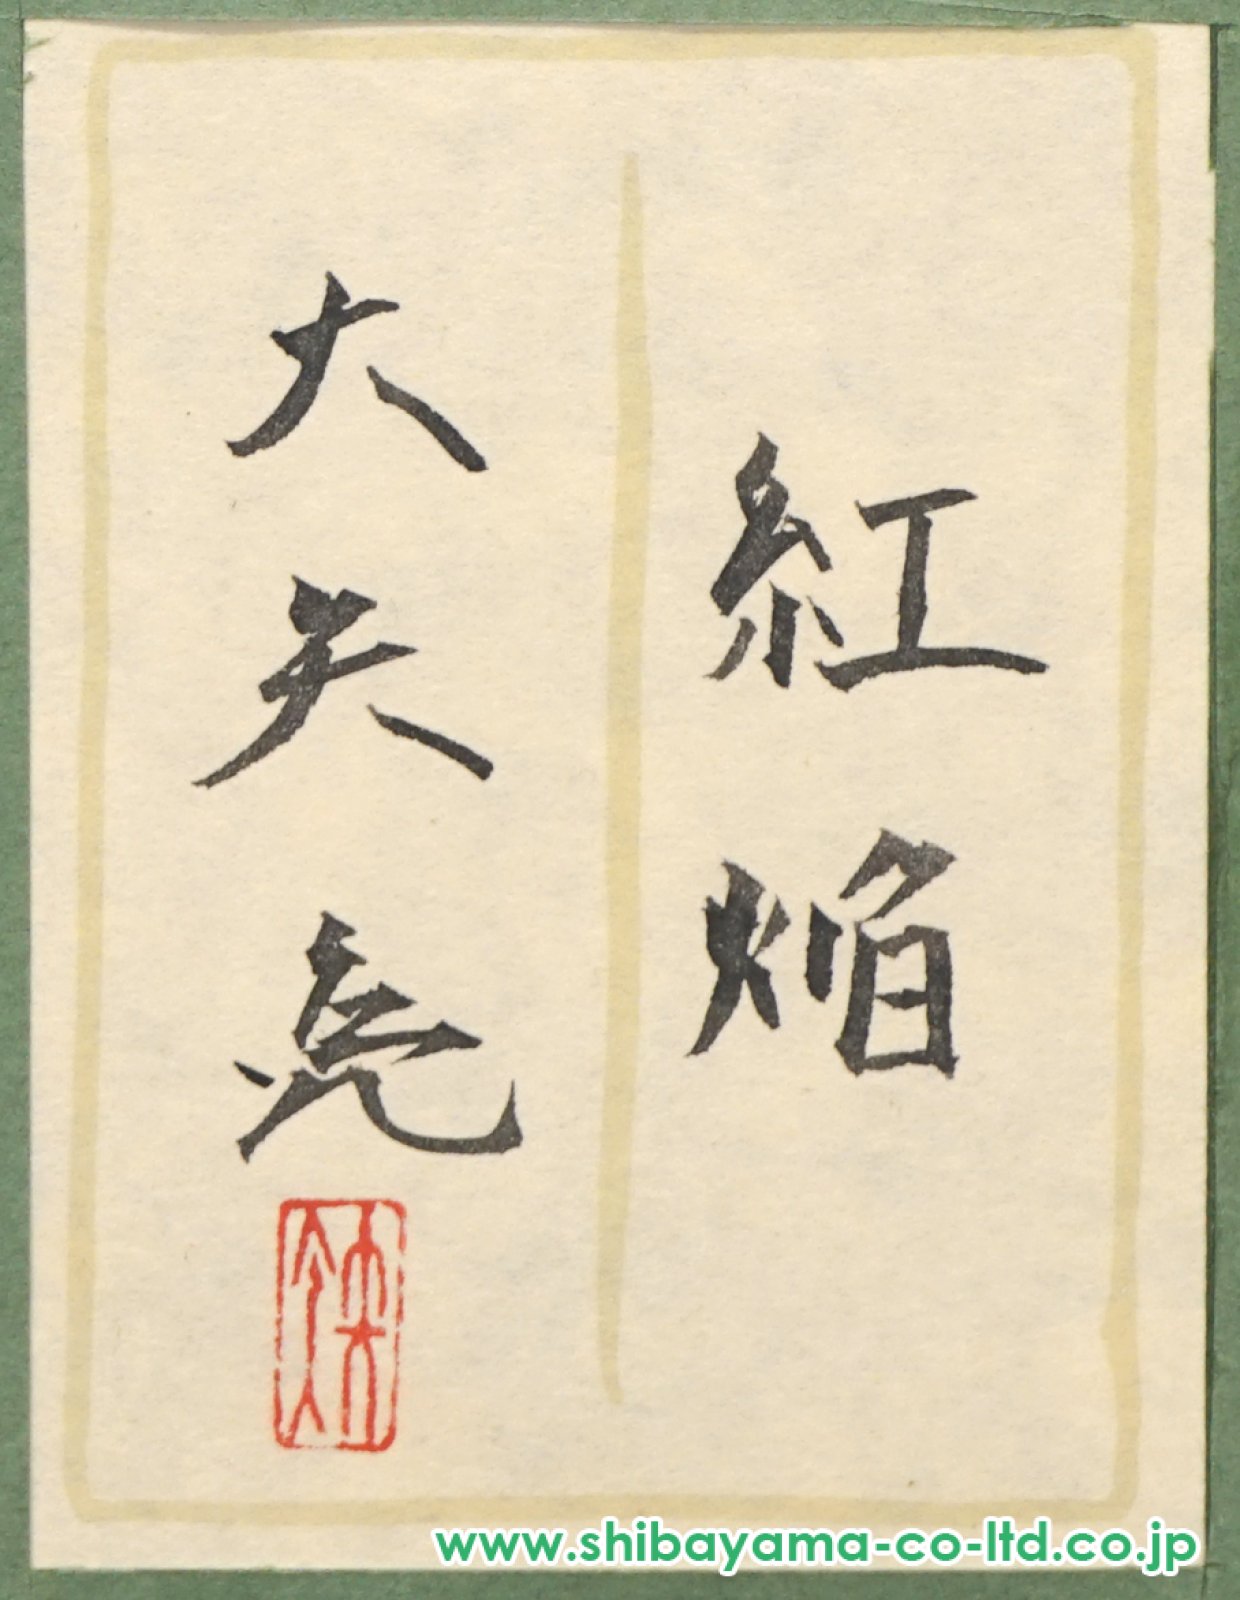 紅焔
大矢亮
www.shibayama-co-ltd.co.jp